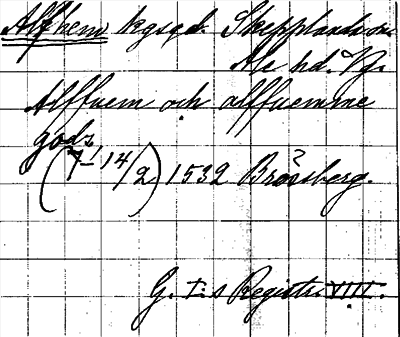 Alfhem kgsgd. Skepplanda sn
Ale hd. Vg.
Alffuem och alffuemme
godz
(7-14/2) 1532 Brörsberg.
?
G. I:s Registr. VIII.